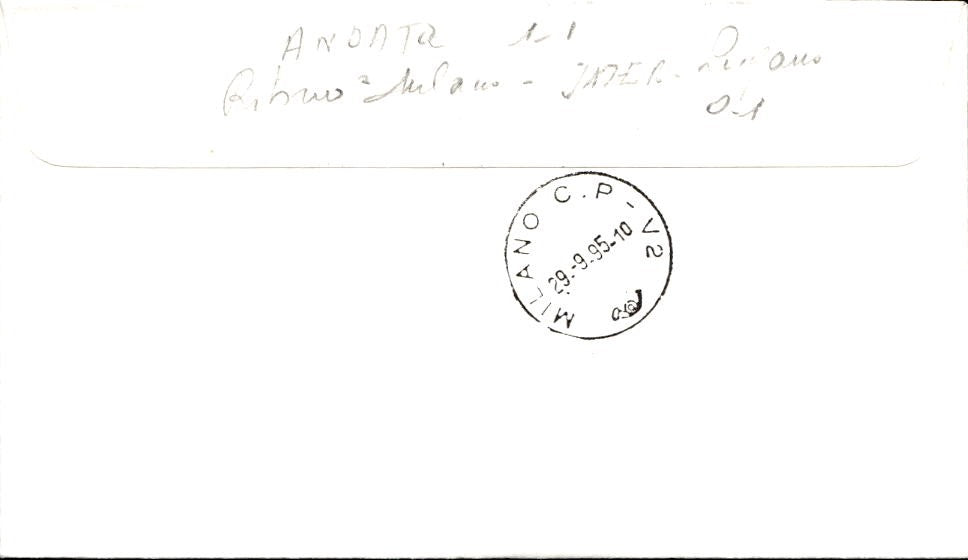 ANDATA 1-1
Ritorno a Milano - INTER - Lugano
0-1
MILANO C.P - V2
29.-9.95-10